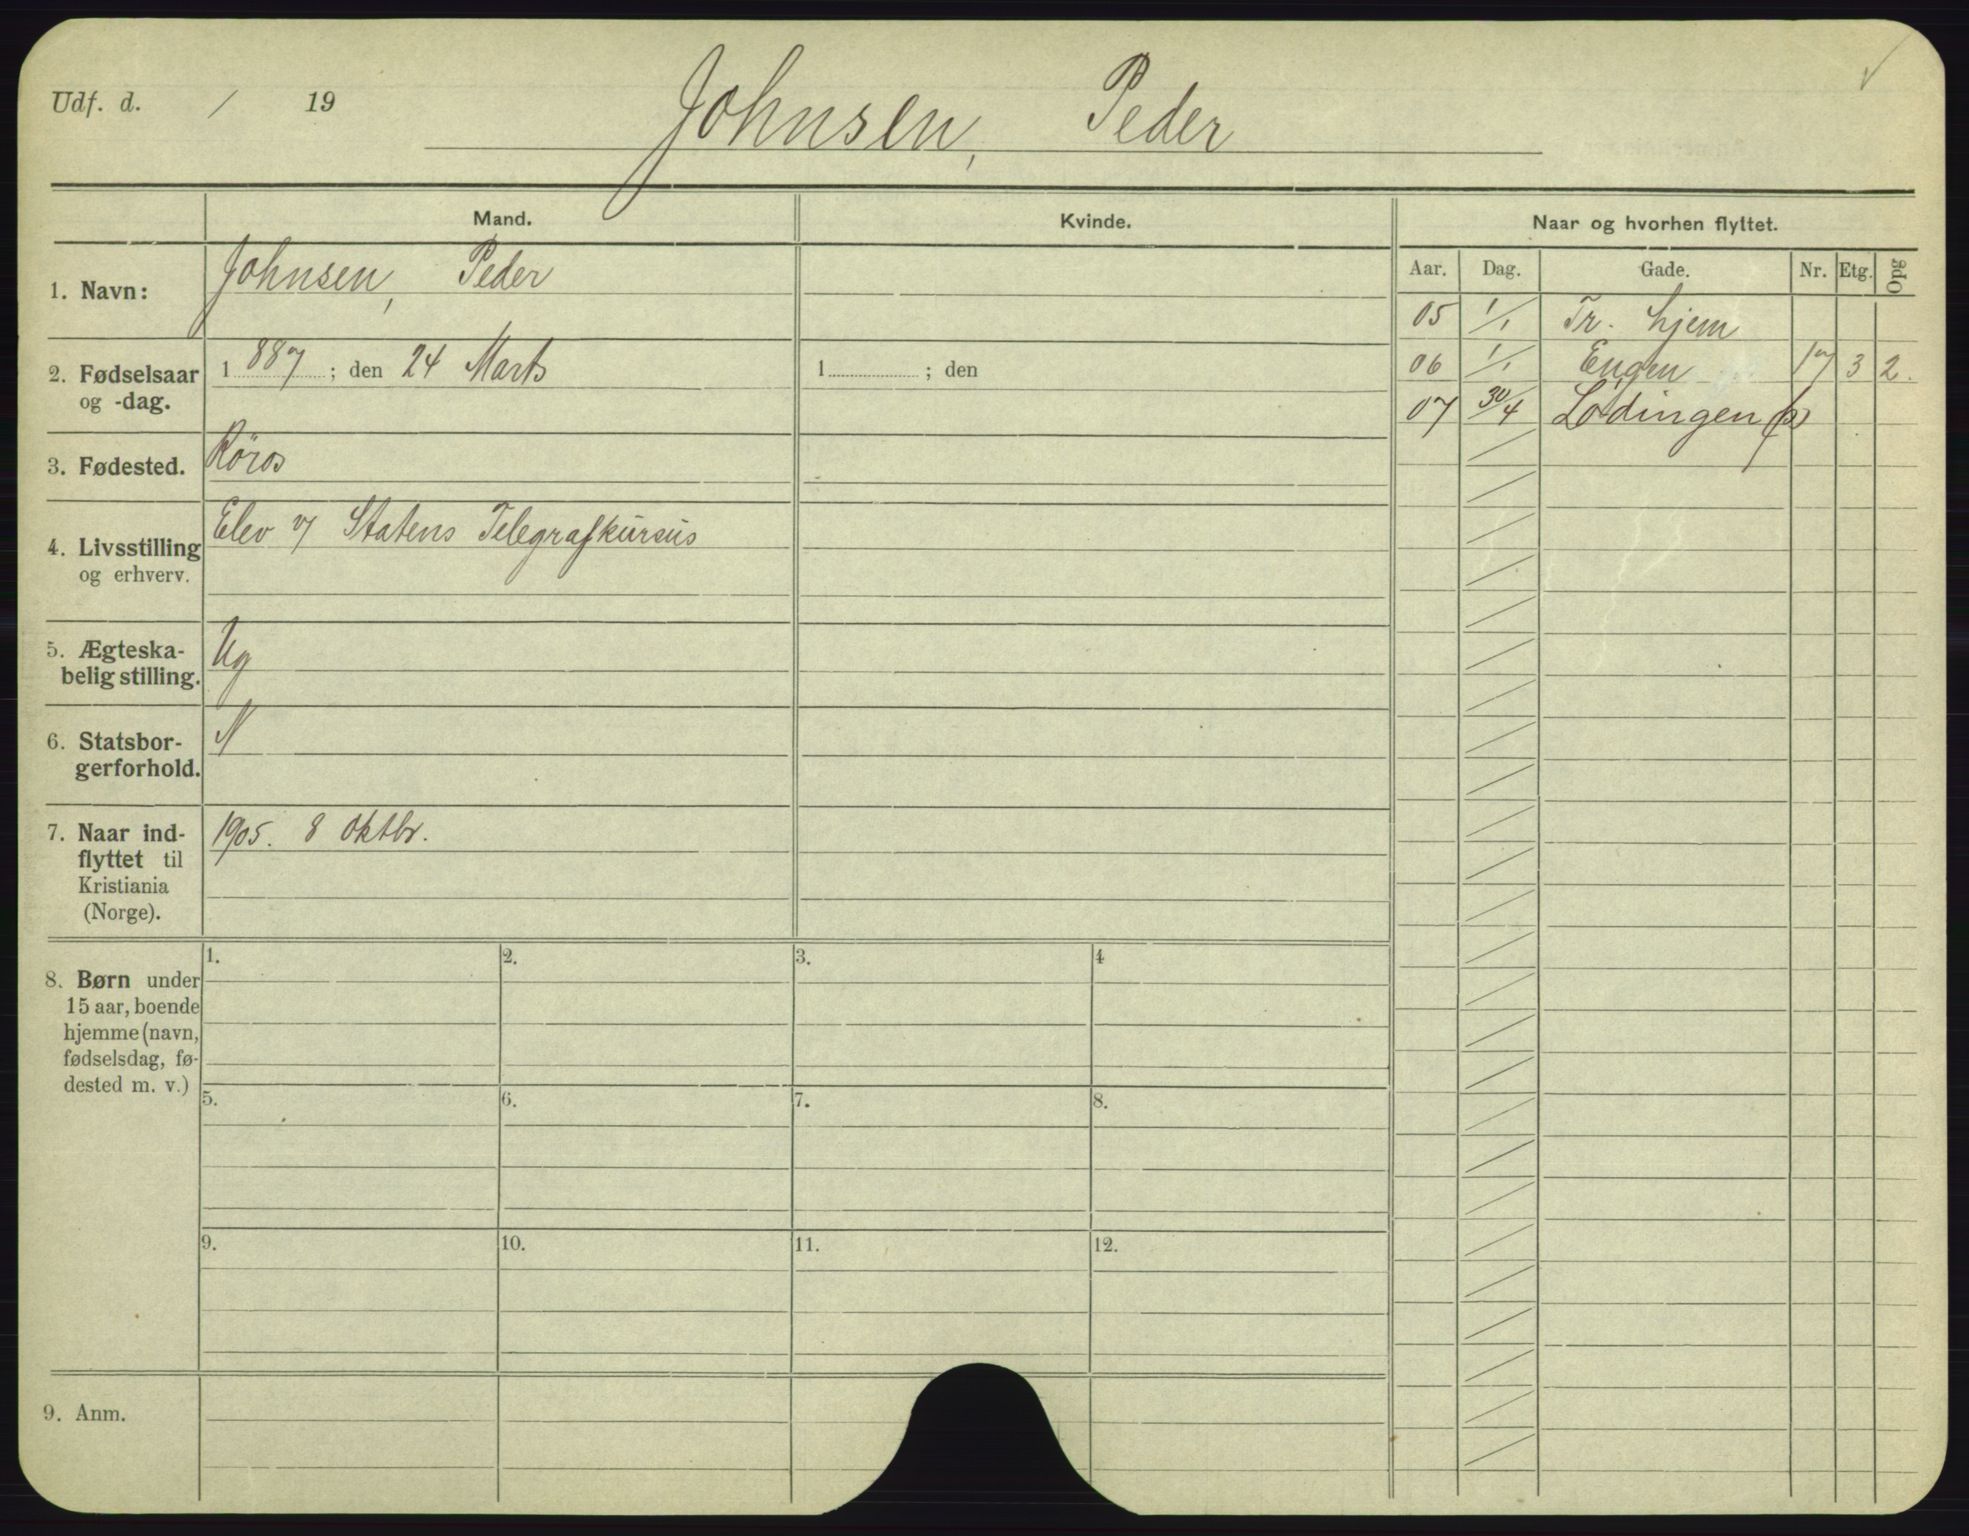 Udf. d. / 19
Johnsen, Peder
Mand.
Kvinde.
Naar og hvorhen flyttet.
Aar. Dag. Gade. Nr. Etg. Opg
1. Navn: Johnsen, Peder
05 1/1 Tr. hjem
2. Fødselsaar og -dag.
1887; den 24 Marts
1 ; den
06 1/1 Engen 17 3 2.
07 30/4 Lødingen (p)
3. Fødested. Røros
4. Livsstilling og erhverv.
Elev v/ Statens Telegrafkursus
5. Ægteska-
belig stilling.
Ug
6. Statsbor-
gerforhold.
N
7. Naar ind-
flyttet til
Kristiania
(Norge).
1905. 8 Oktbr.
8. Børn under
15 aar, boende
hjemme (navn,
fødselsdag, fø-
dested m. v.)
1. 2. 3. 4
5. 6. 7. 8.
9. 10. 11. 12.
9. Anm.